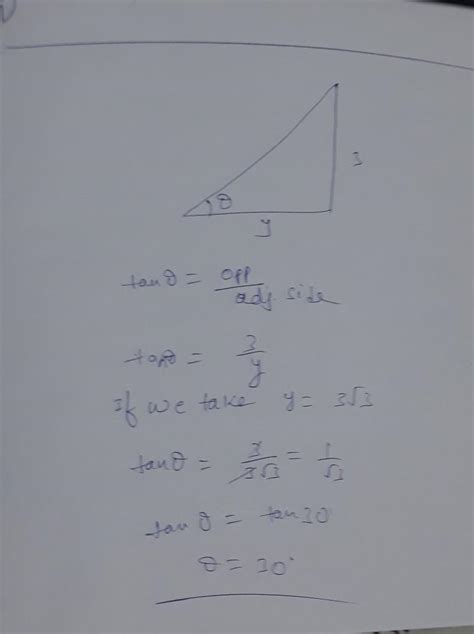 3
θ
y
tanθ = opp/adj. side
tanθ = 3/y
If we take y = 3√3
tanθ = 3/3√3 = 1/√3
tanθ = tan30°
θ = 30°